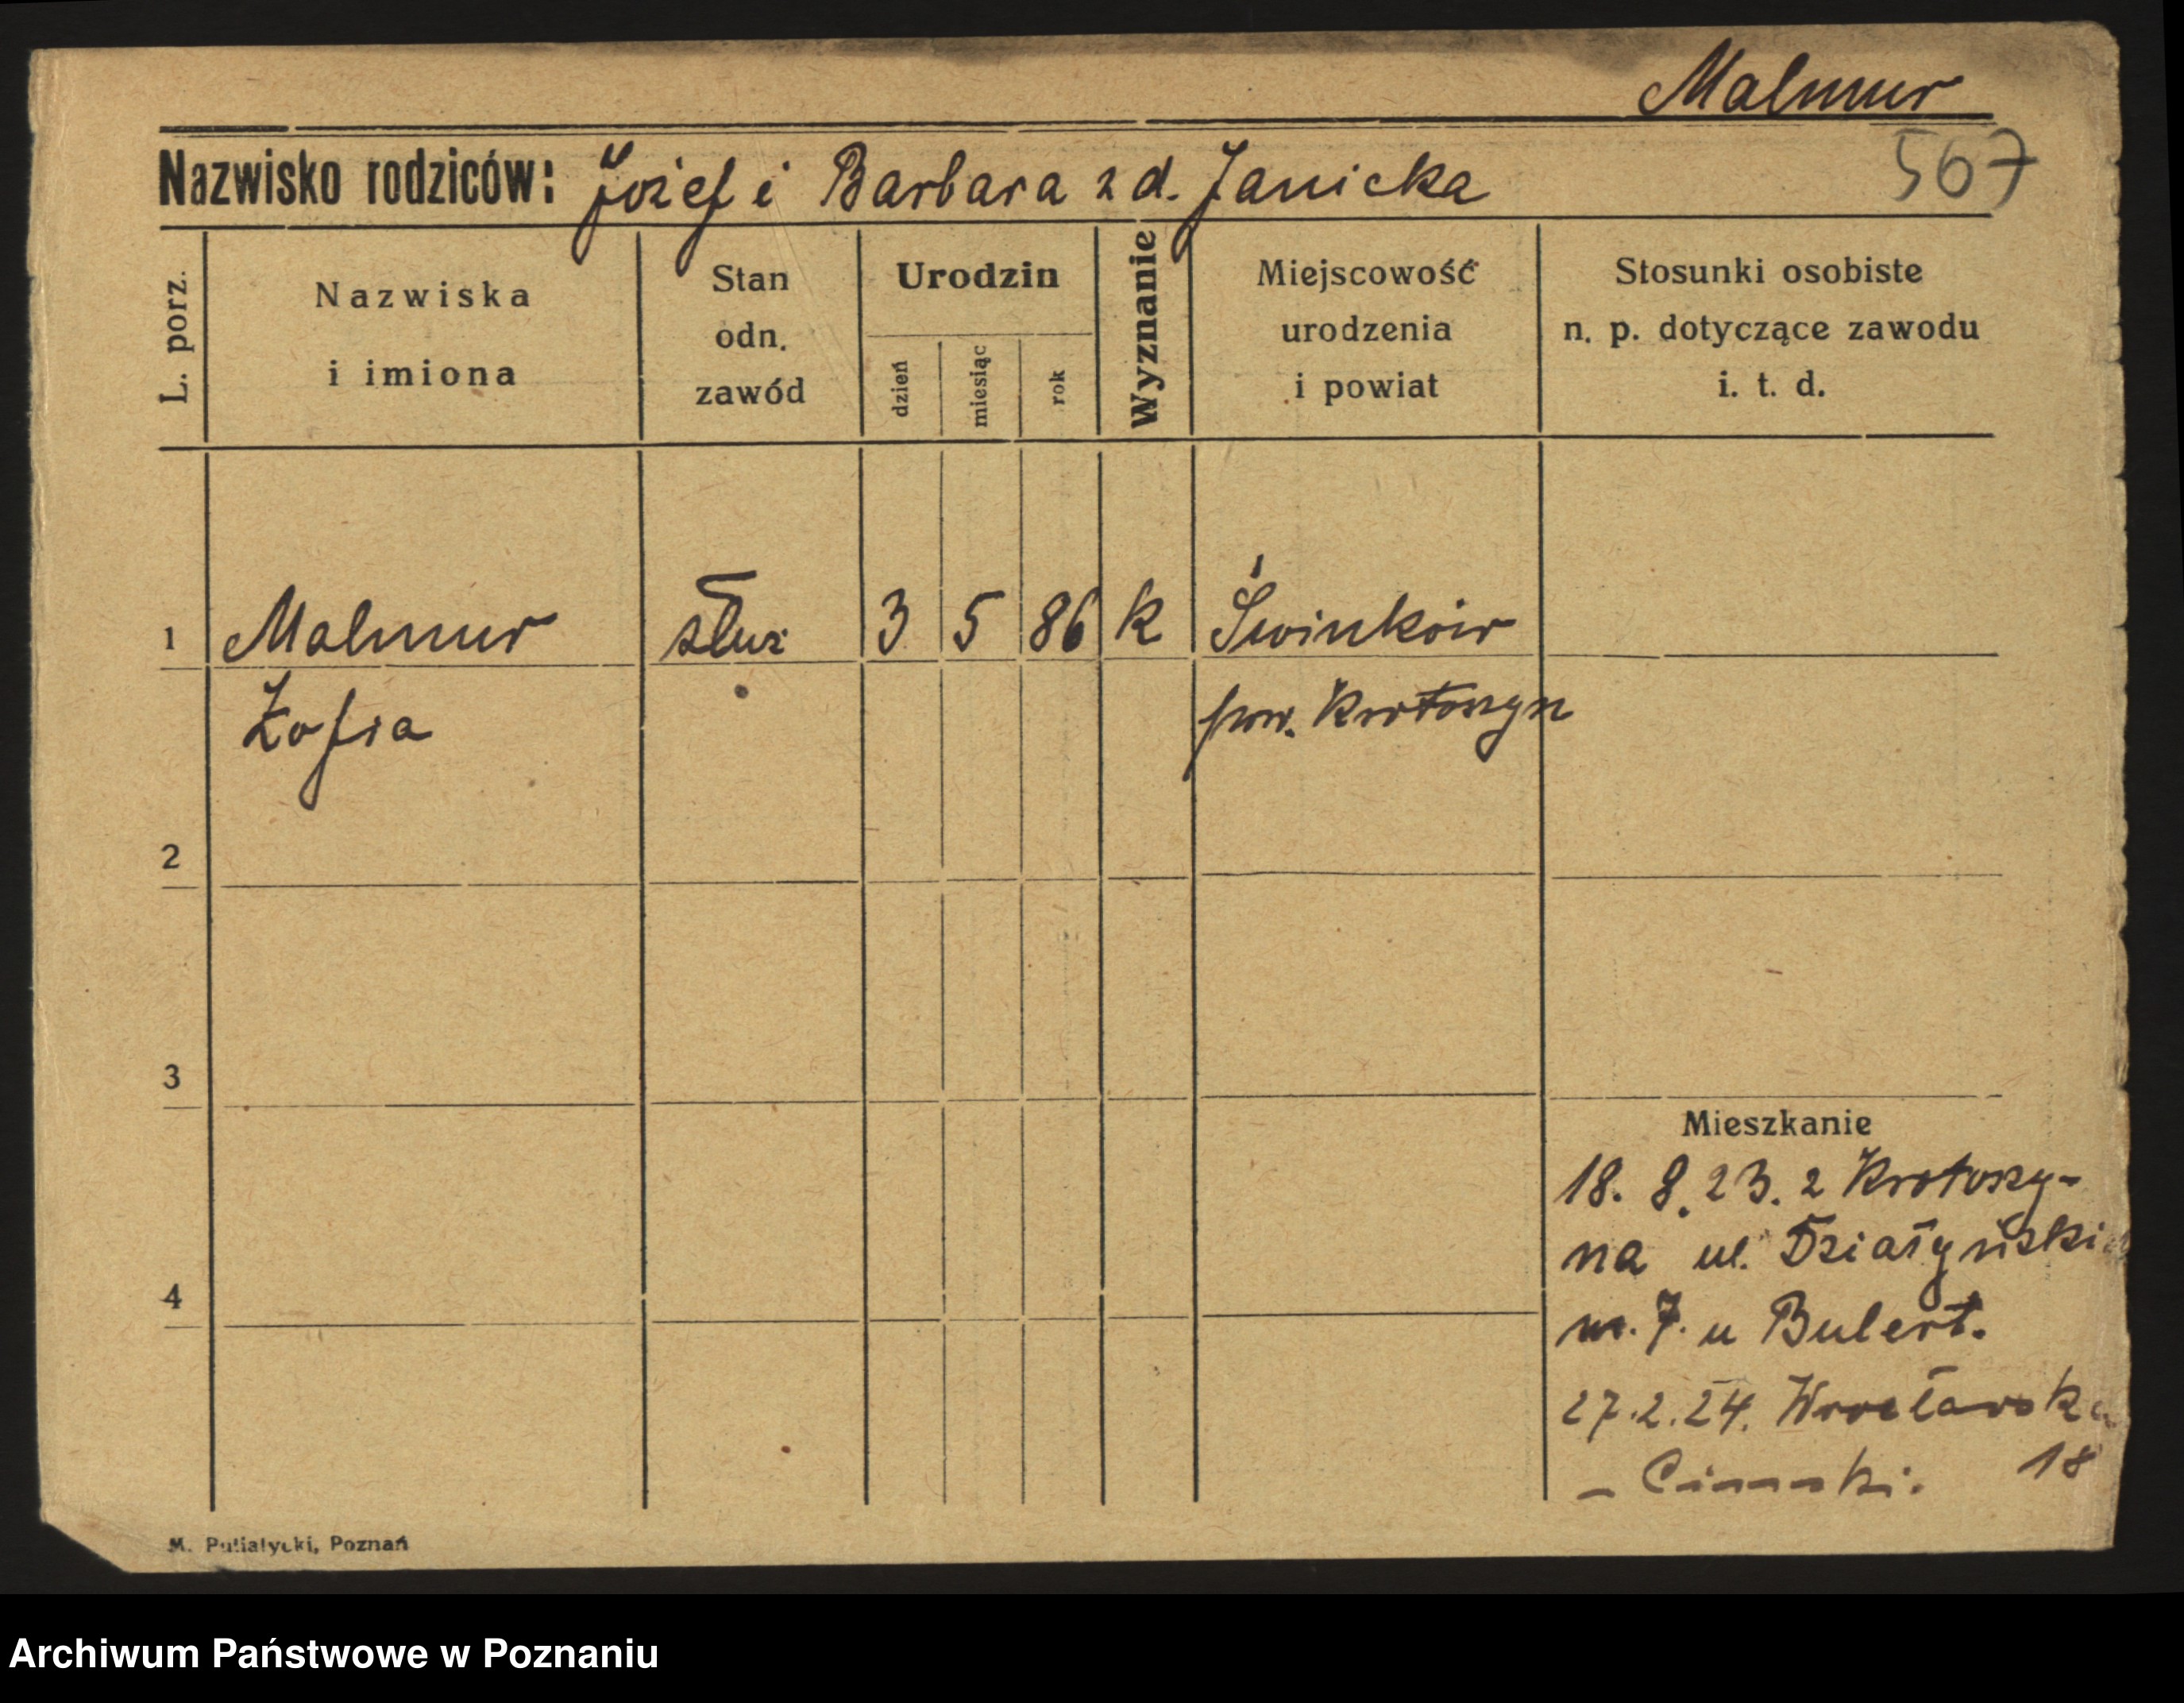 Malmur
567
Nazwisko rodziców: Józef i Barbara z d. Janicka
L. porz.
Nazwiska
i imiona
Stan
odn.
zawód
Urodzin
dzień
miesiąc
rok
Wyznanie
Miejscowość
urodzenia
i powiat
Stosunki osobiste
n. p. dotyczące zawodu
i. t. d.
1 Malmur służ 3 5 86 k Świnków
Zofia pow. Krotoszyn
2
3
Mieszkanie
18. 8. 23. z Krotoszy-
na ul. Działyński
4
m. 7. u Bulert.
27.2.24. Wrocławska
18
M. Putiatycki, Poznań
Archiwum Państwowe w Poznaniu